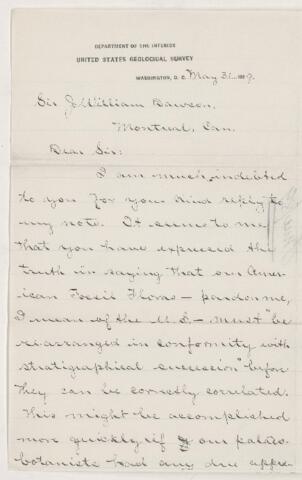 DEPARTMENT OF THE INTERIOR
UNITED STATES GEOLOGICAL SURVEY
WASHINGTON, D. C. May 31 1889.
Sir J. William Dawson,
Montreal, Can.
Dear Sir:
I am much indebted
to you for your kind reply to
my note. It seems to me
that you have expressed the
truth in saying that our Amer-
ican Fossil Floras — pardon me,
I mean of the U.S. — must "be
re-arranged in conformity with
stratigraphical succession before
they can be correctly correlated.
This might be accomplished
more quickly if our palæo-
botanists had any due appre-